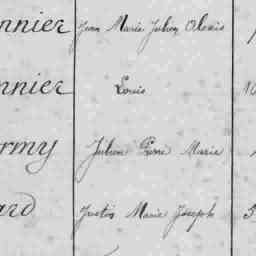 nnier Jean Marie Julien Alexis 1
nnier Louis 10
rmy Julien Pierre Marie
ard Justin Marie Joseph 5